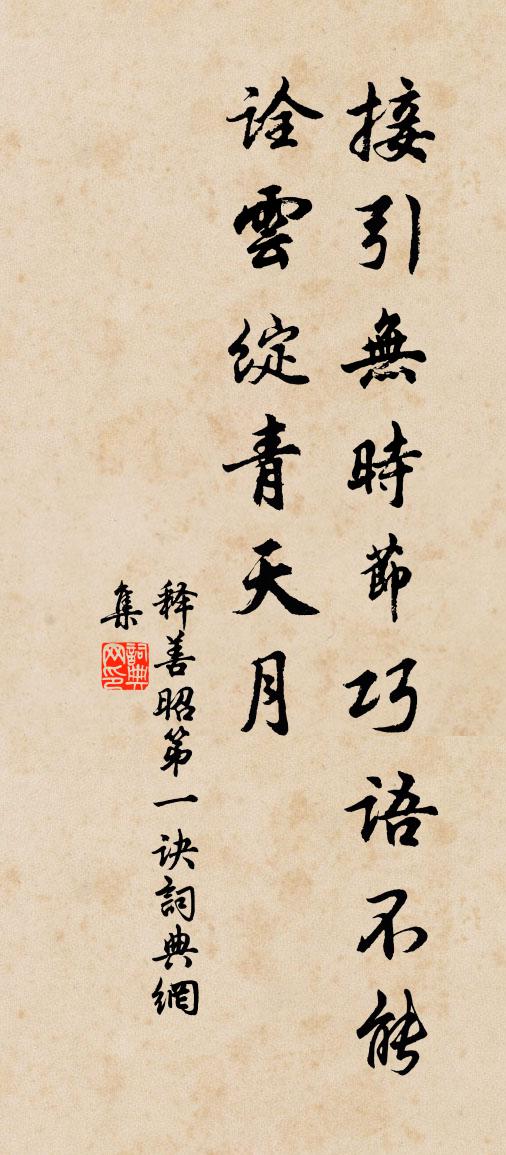 接引無時節巧語不能
詮雲綻青天月
释善昭第一诀詞典網
集
詞典
网印